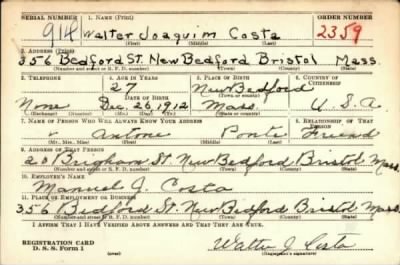 SERIAL NUMBER 1. NAME (Print) ORDER NUMBER
914 Walter Joaquim Costa 2359
(First) (Middle) (Last)
2. ADDRESS (Print)
356 Bedford St. New Bedford Bristol Mass.
(Number and street or R. F. D. number) (Town) (County) (State)
3. TELEPHONE 4. AGE IN YEARS 5. PLACE OF BIRTH 6. COUNTRY OF CITIZENSHIP
27 New Bedford
DATE OF BIRTH (Town or county)
None Dec. 26, 1912 Mass. U.S.A.
(Exchange) (Number) (Mo.) (Day) (Yr.) (State or country)
7. NAME OF PERSON WHO WILL ALWAYS KNOW YOUR ADDRESS 8. RELATIONSHIP OF THAT PERSON
Antone Ponte Friend
(Mr., Mrs., Miss) (First) (Middle) (Last)
9. ADDRESS OF THAT PERSON
20 Brigham St. New Bedford Bristol Mass.
(Number and street or R. F. D. number) (Town) (County) (State)
10. EMPLOYER'S NAME
Manuel J. Costa
11. PLACE OF EMPLOYMENT OR BUSINESS
356 Bedford St. New Bedford Bristol Mass.
(Number and street or R. F. D. number) (Town) (County) (State)
I AFFIRM THAT I HAVE VERIFIED ABOVE ANSWERS AND THAT THEY ARE TRUE.
REGISTRATION CARD
D. S. S. Form 1 Walter J Costa
(over) (Registrant's signature)